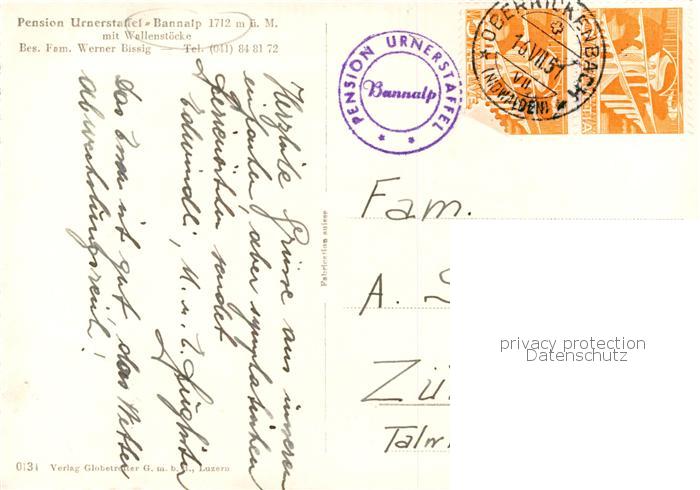 Pension Urnerstaffel - Bannalp 1712 m ü. M.
mit Wallenstöcke
Bes. Fam. Werner Bissig Tel. (041) 84 81 72
PENSION URNERSTAFFEL
Bannalp
OBERRICKENBACH
(NIDWALDEN)
Herzliche Grüsse aus unserem
einfachen, aber sympatischen
Ferienörtchen sendet
Das Essen ist gut, das Wetter
abwechslungsreich!
Fabrication suisse
Fam.
A.
Zü
Talw
privacy protection
Datenschutz
0134 Verlag Globetrotter G. m. b. H., Luzern